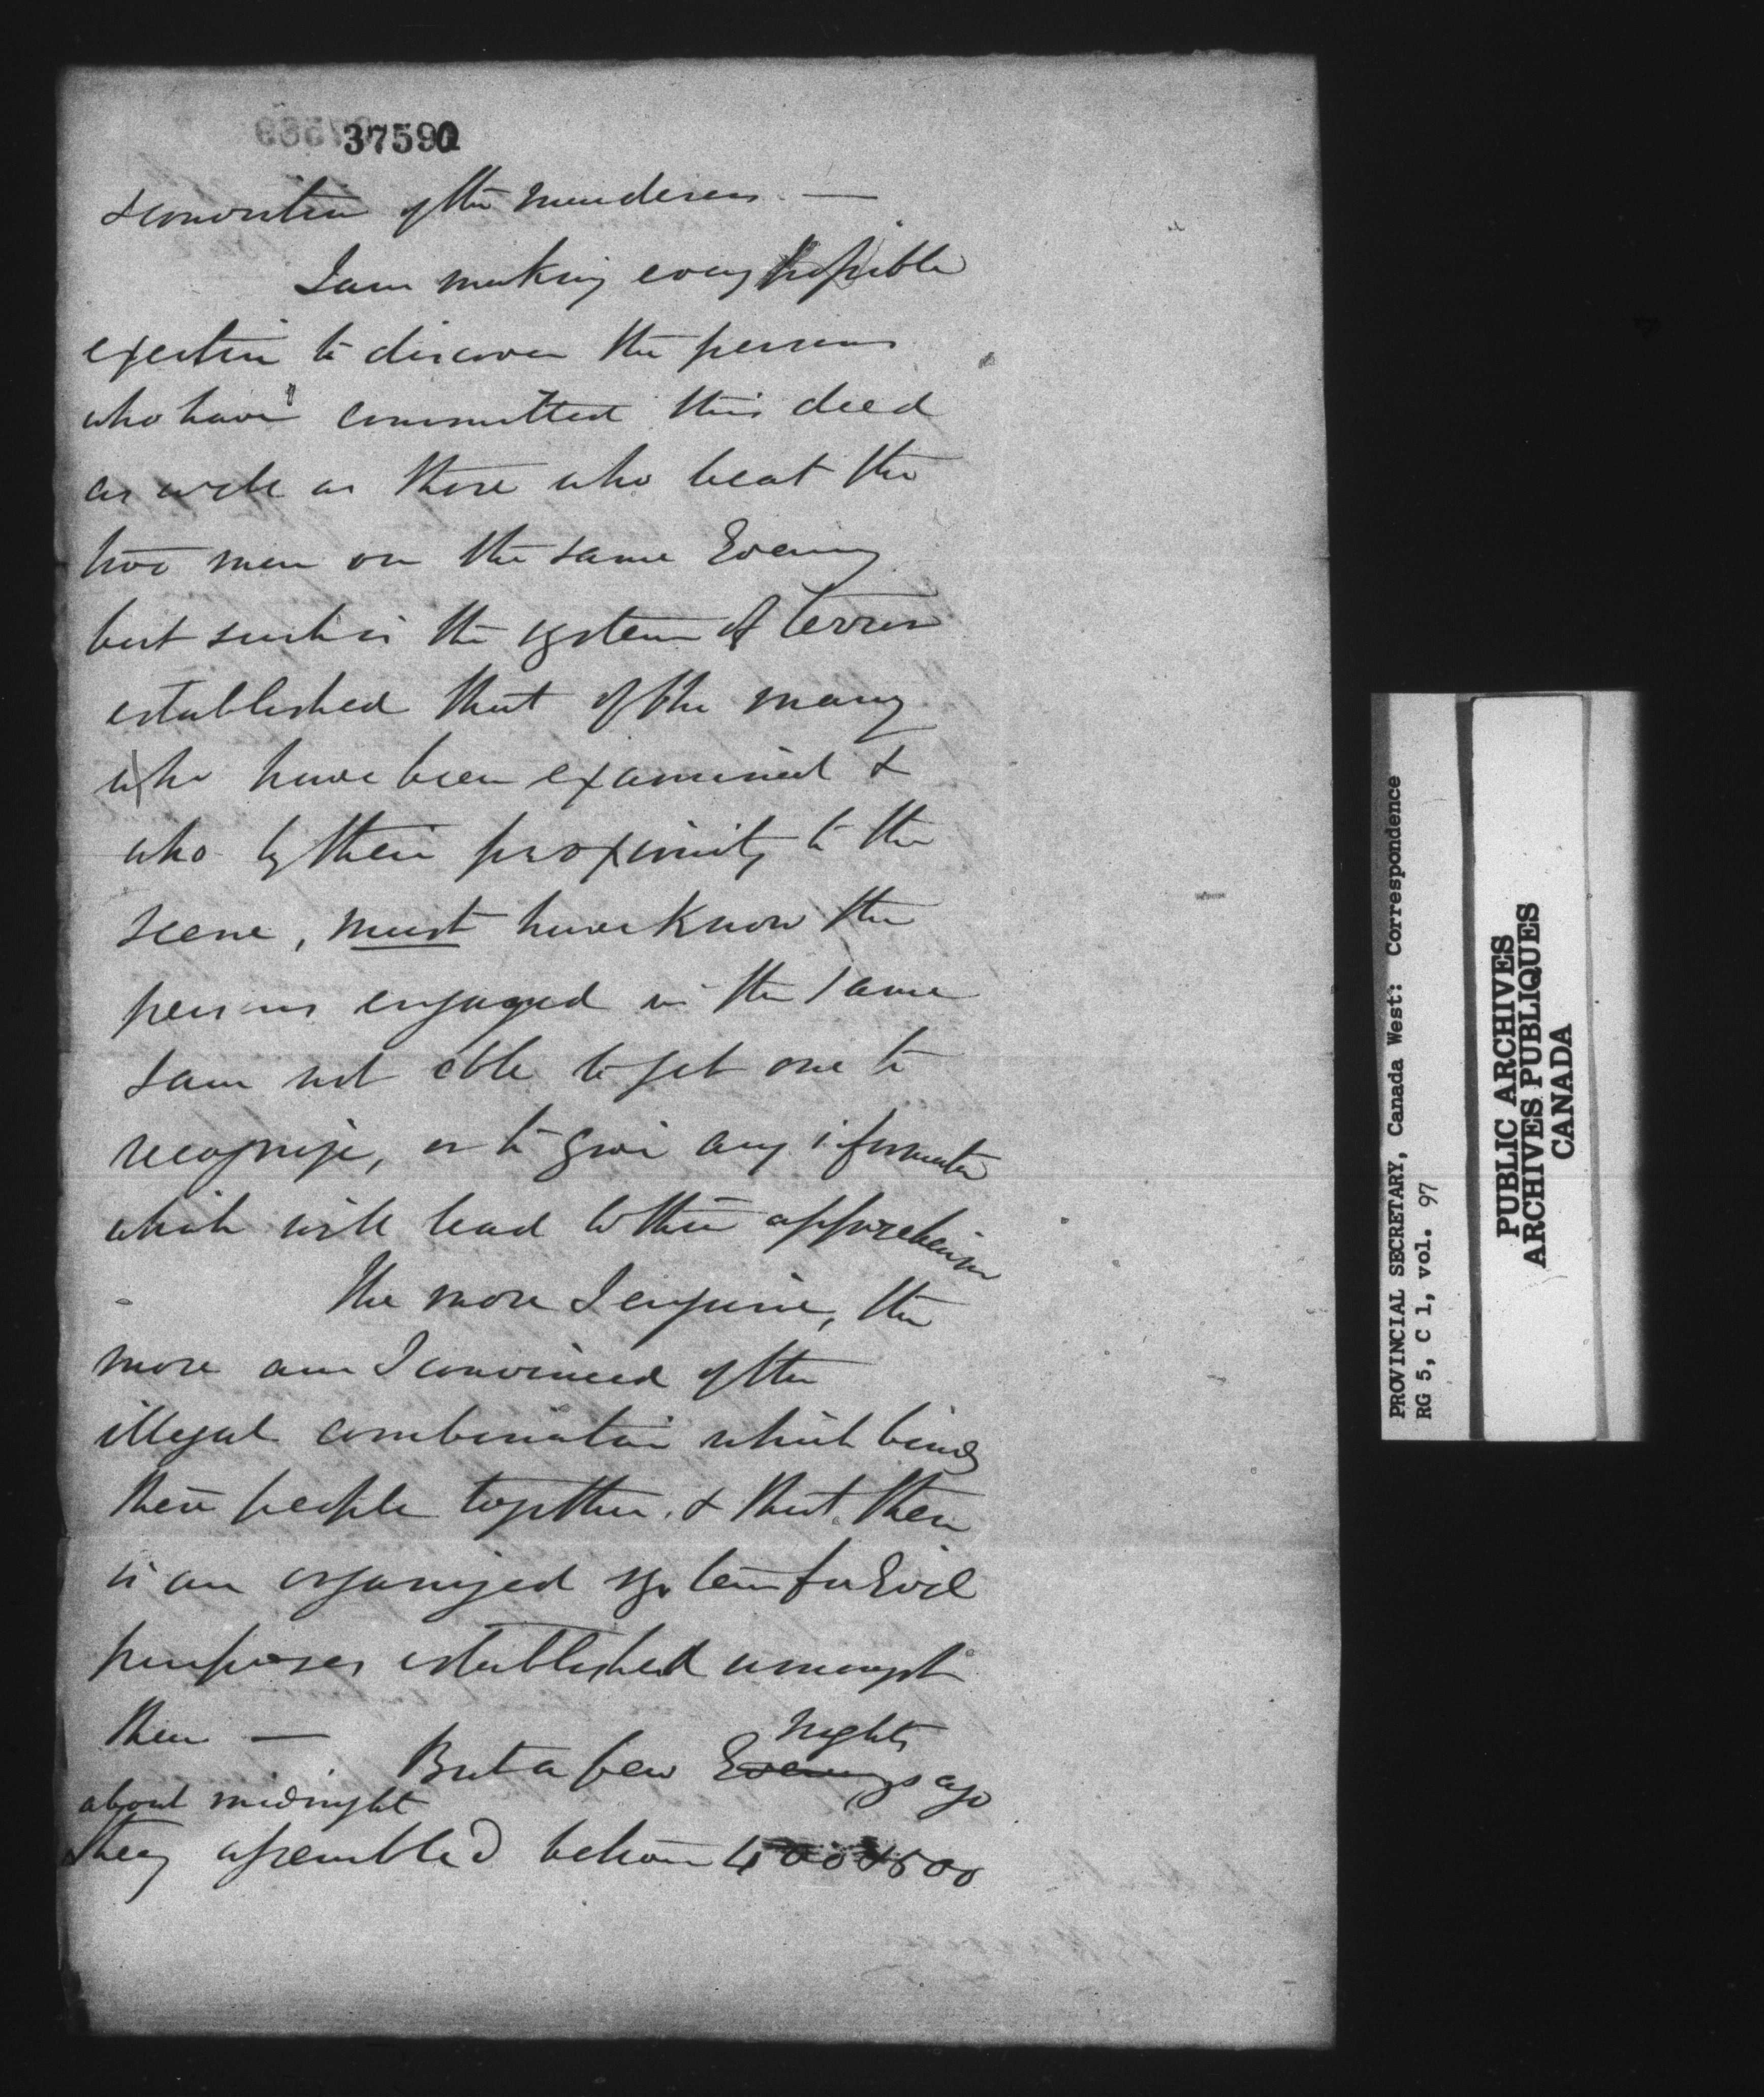 37590
& conviction of the murderers. —
I am making every possible
exertion to discover the persons
who have committed this deed
as well as those who beat the
two men on the same Evening
but such is the system of terror
established that of the many
who have been examined &
who by their proximity to the
scene, must have know the
persons engaged in the same
I am not able to get one to
recognize, or to give any information
which will lead to their apprehension
The more I enquire, the
more am I convinced of the
illegal combination which binds
these people together. & that there
is an organized system for Evil
purposes established amongst
them —
nights
But a few Evenings ago
about midnight
they assembled between 400 & 500
PROVINCIAL SECRETARY, Canada West: Correspondence
RG 5, C 1, vol. 97
PUBLIC ARCHIVES
ARCHIVES PUBLIQUES
CANADA